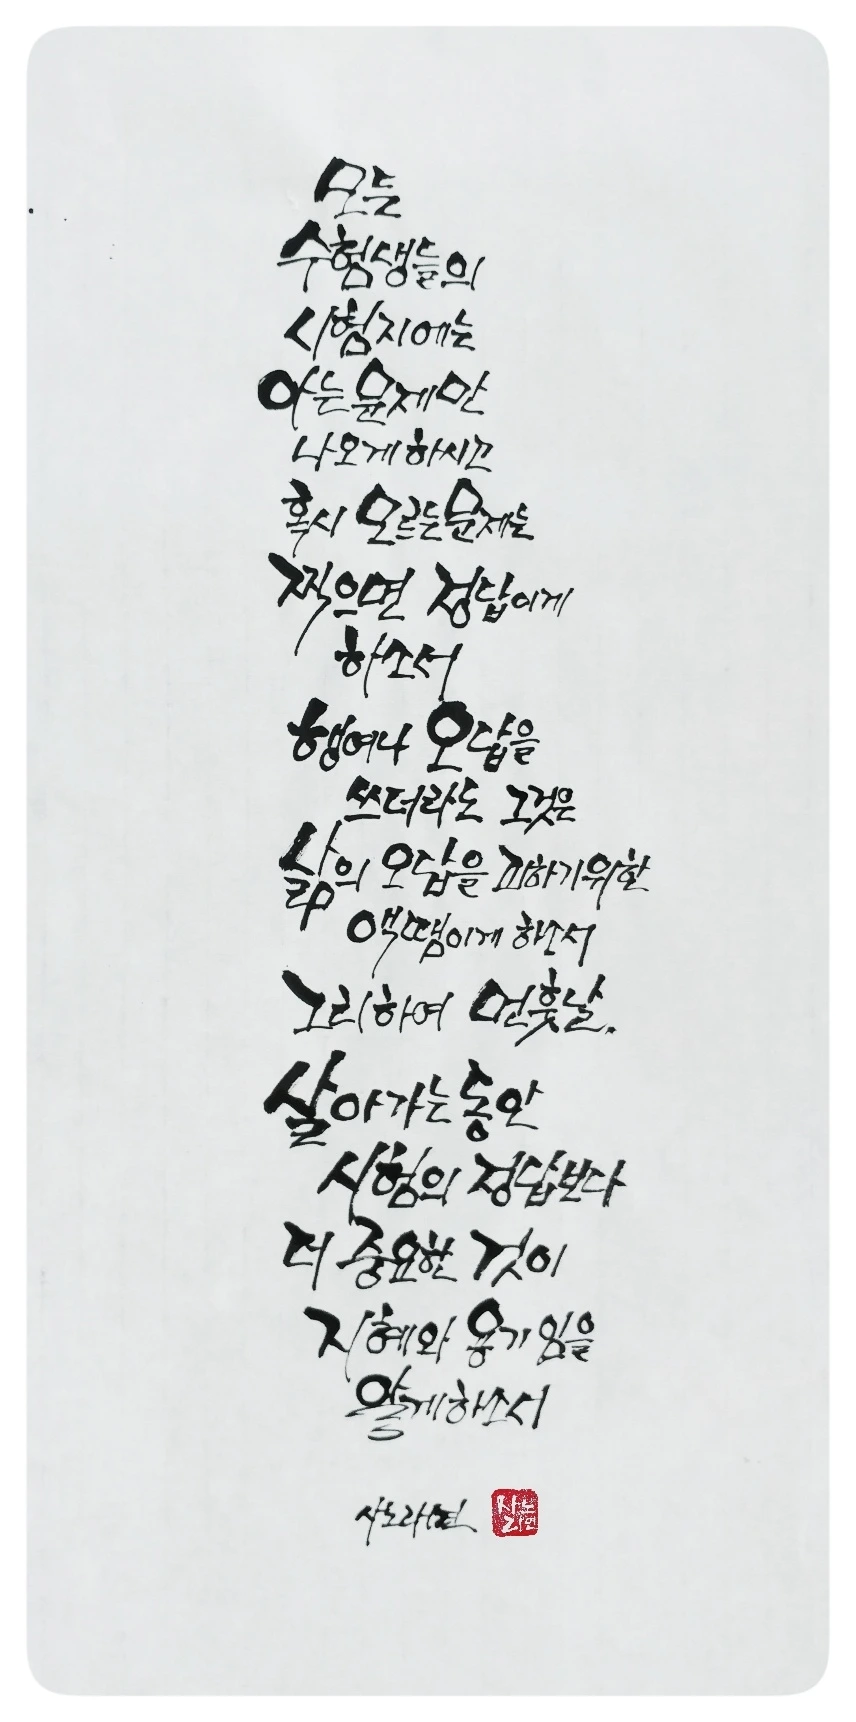 모든
수험생들의
시험지에는
아는 문제만
나오게 하시고
혹시 모르는 문제는
찍으면 정답이게
하소서
행여나 오답을
쓰더라도 그것은
삶의 오답을 피하기위한
액땜이게 하소서
그리하여 먼훗날.
살아가는 동안
시험의 정답보다
더 중요한 것이
지혜와 용기 임을
알게하소서
사노라면
사노라면